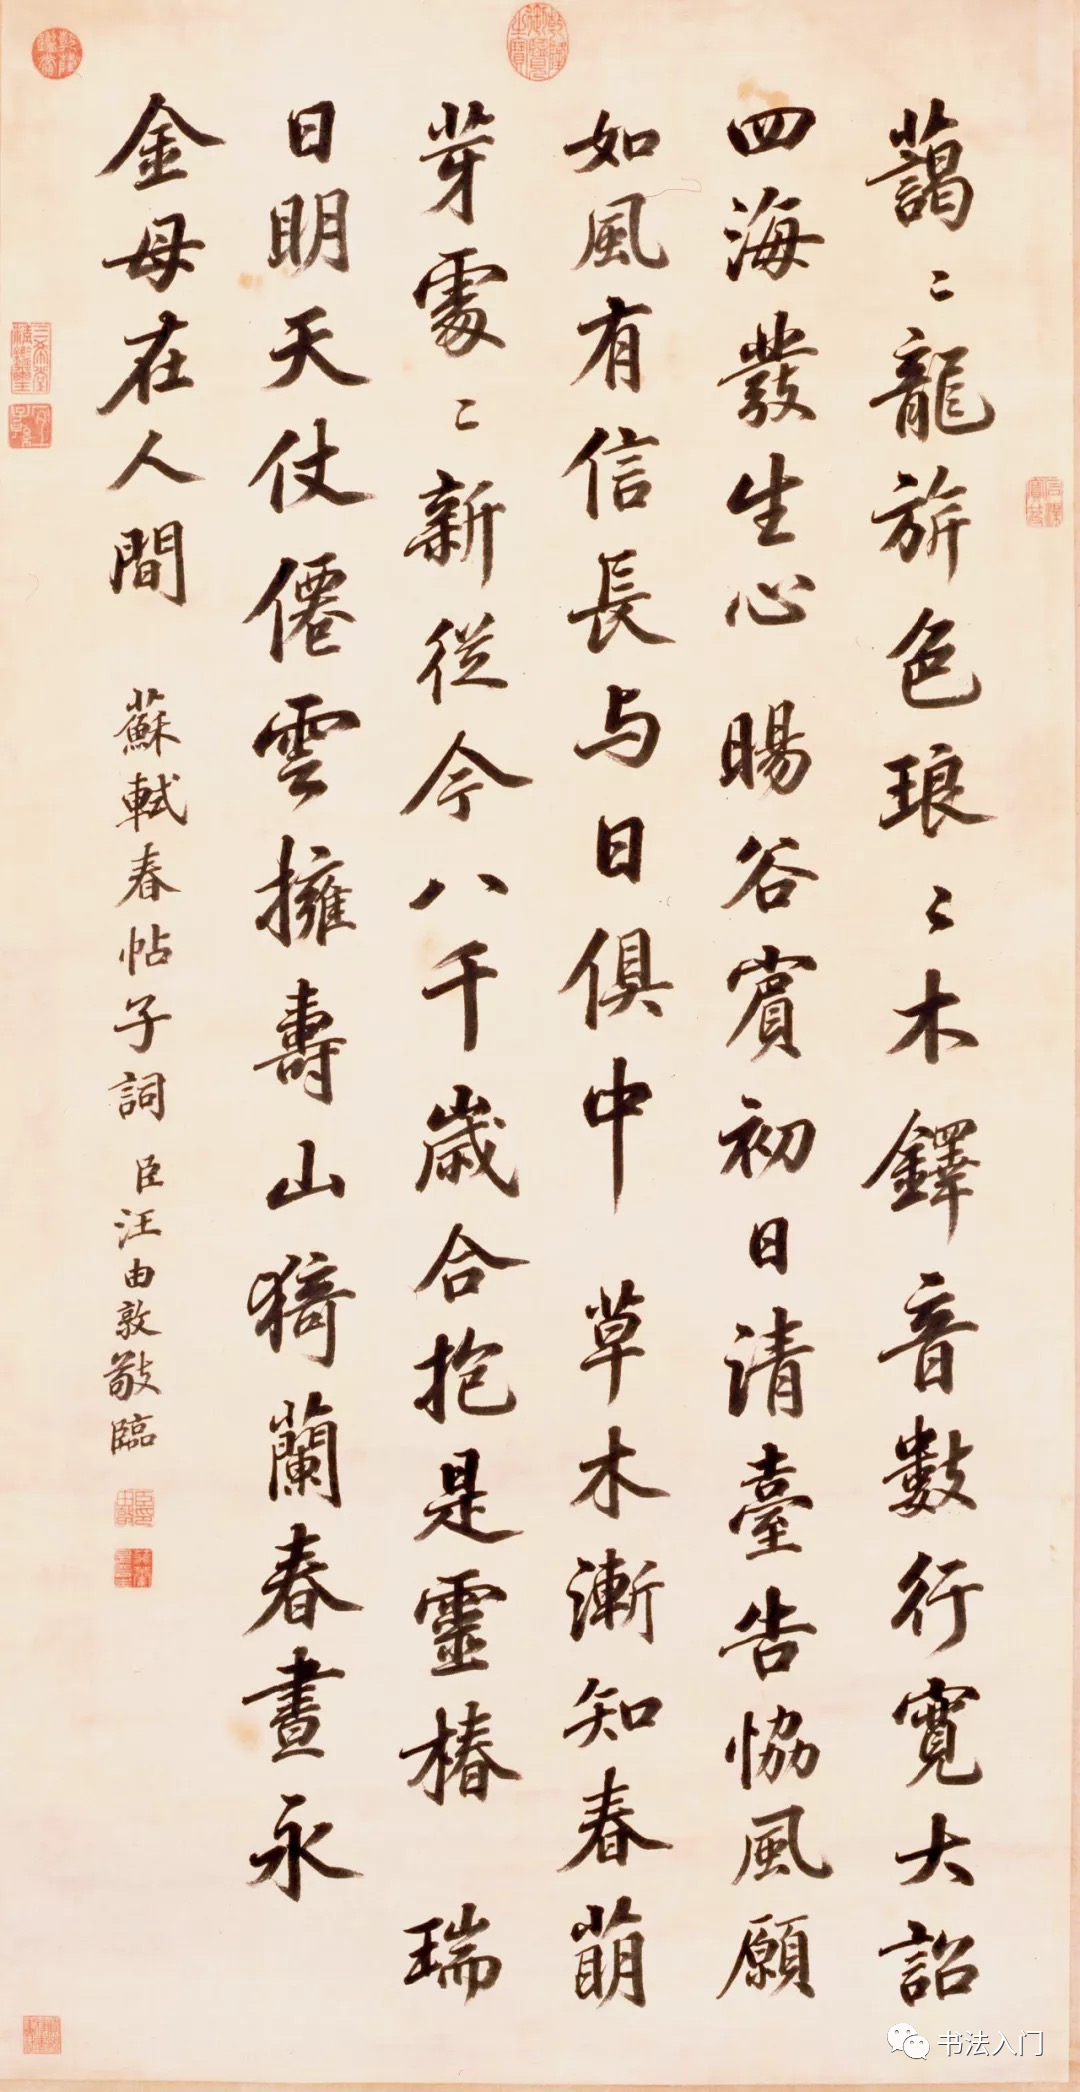 藹〻龍旂色琅〻木鐸音數行寬大詔
四海發生心 暘谷賓初日清臺告協風願
如風有信長与日俱中 草木漸知春萌
芽處〻新從今八千歲合抱是靈椿 瑞
日明天仗僊雲擁壽山猗蘭春晝永
金母在人間
蘇軾春帖子詞 臣汪由敦敬臨
书法入门